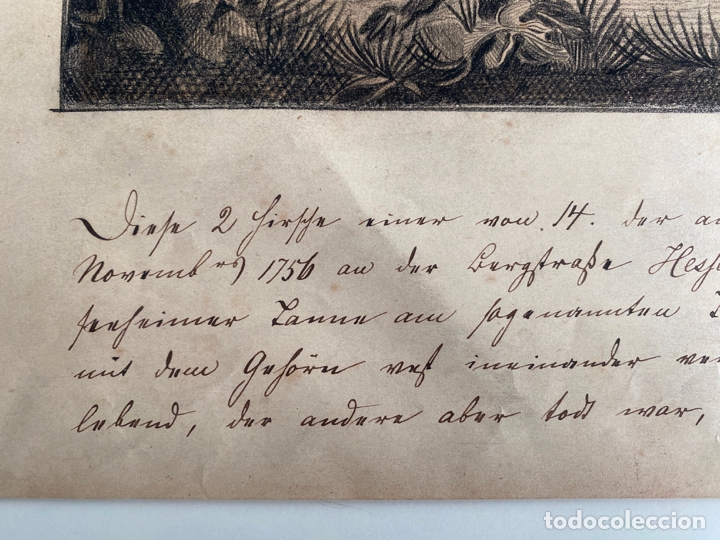 Diese 2 Hirsche einer von 14. der a
Novembrs 1756 an der Bergstraße Hess
seeheimer Tanne am sogenannten
mit dem Gehörn vest ineinander ver
lebend, der andere aber todt war,
todocoleccion